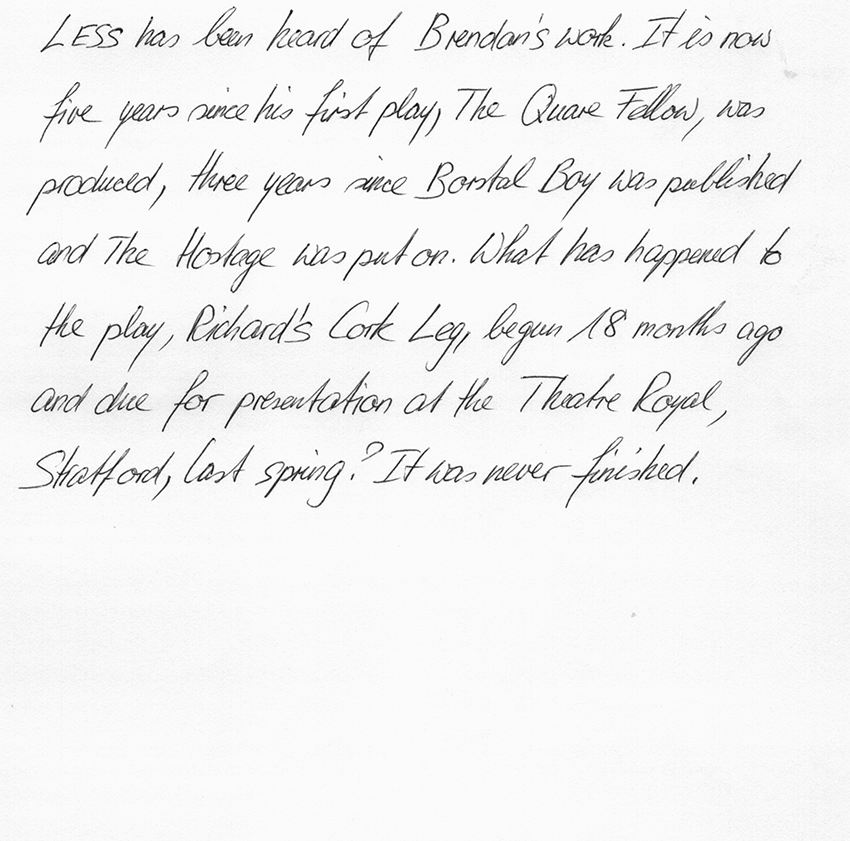 LESS has been heard of Brendan's work. It is now
five years since his first play, The Quare Fellow, was
produced, three years since Borstal Boy was published
and The Hostage was put on. What has happened to
the play, Richard's Cork Leg, begun 18 months ago
and due for presentation at the Theatre Royal,
Stratford, last spring? It was never finished.